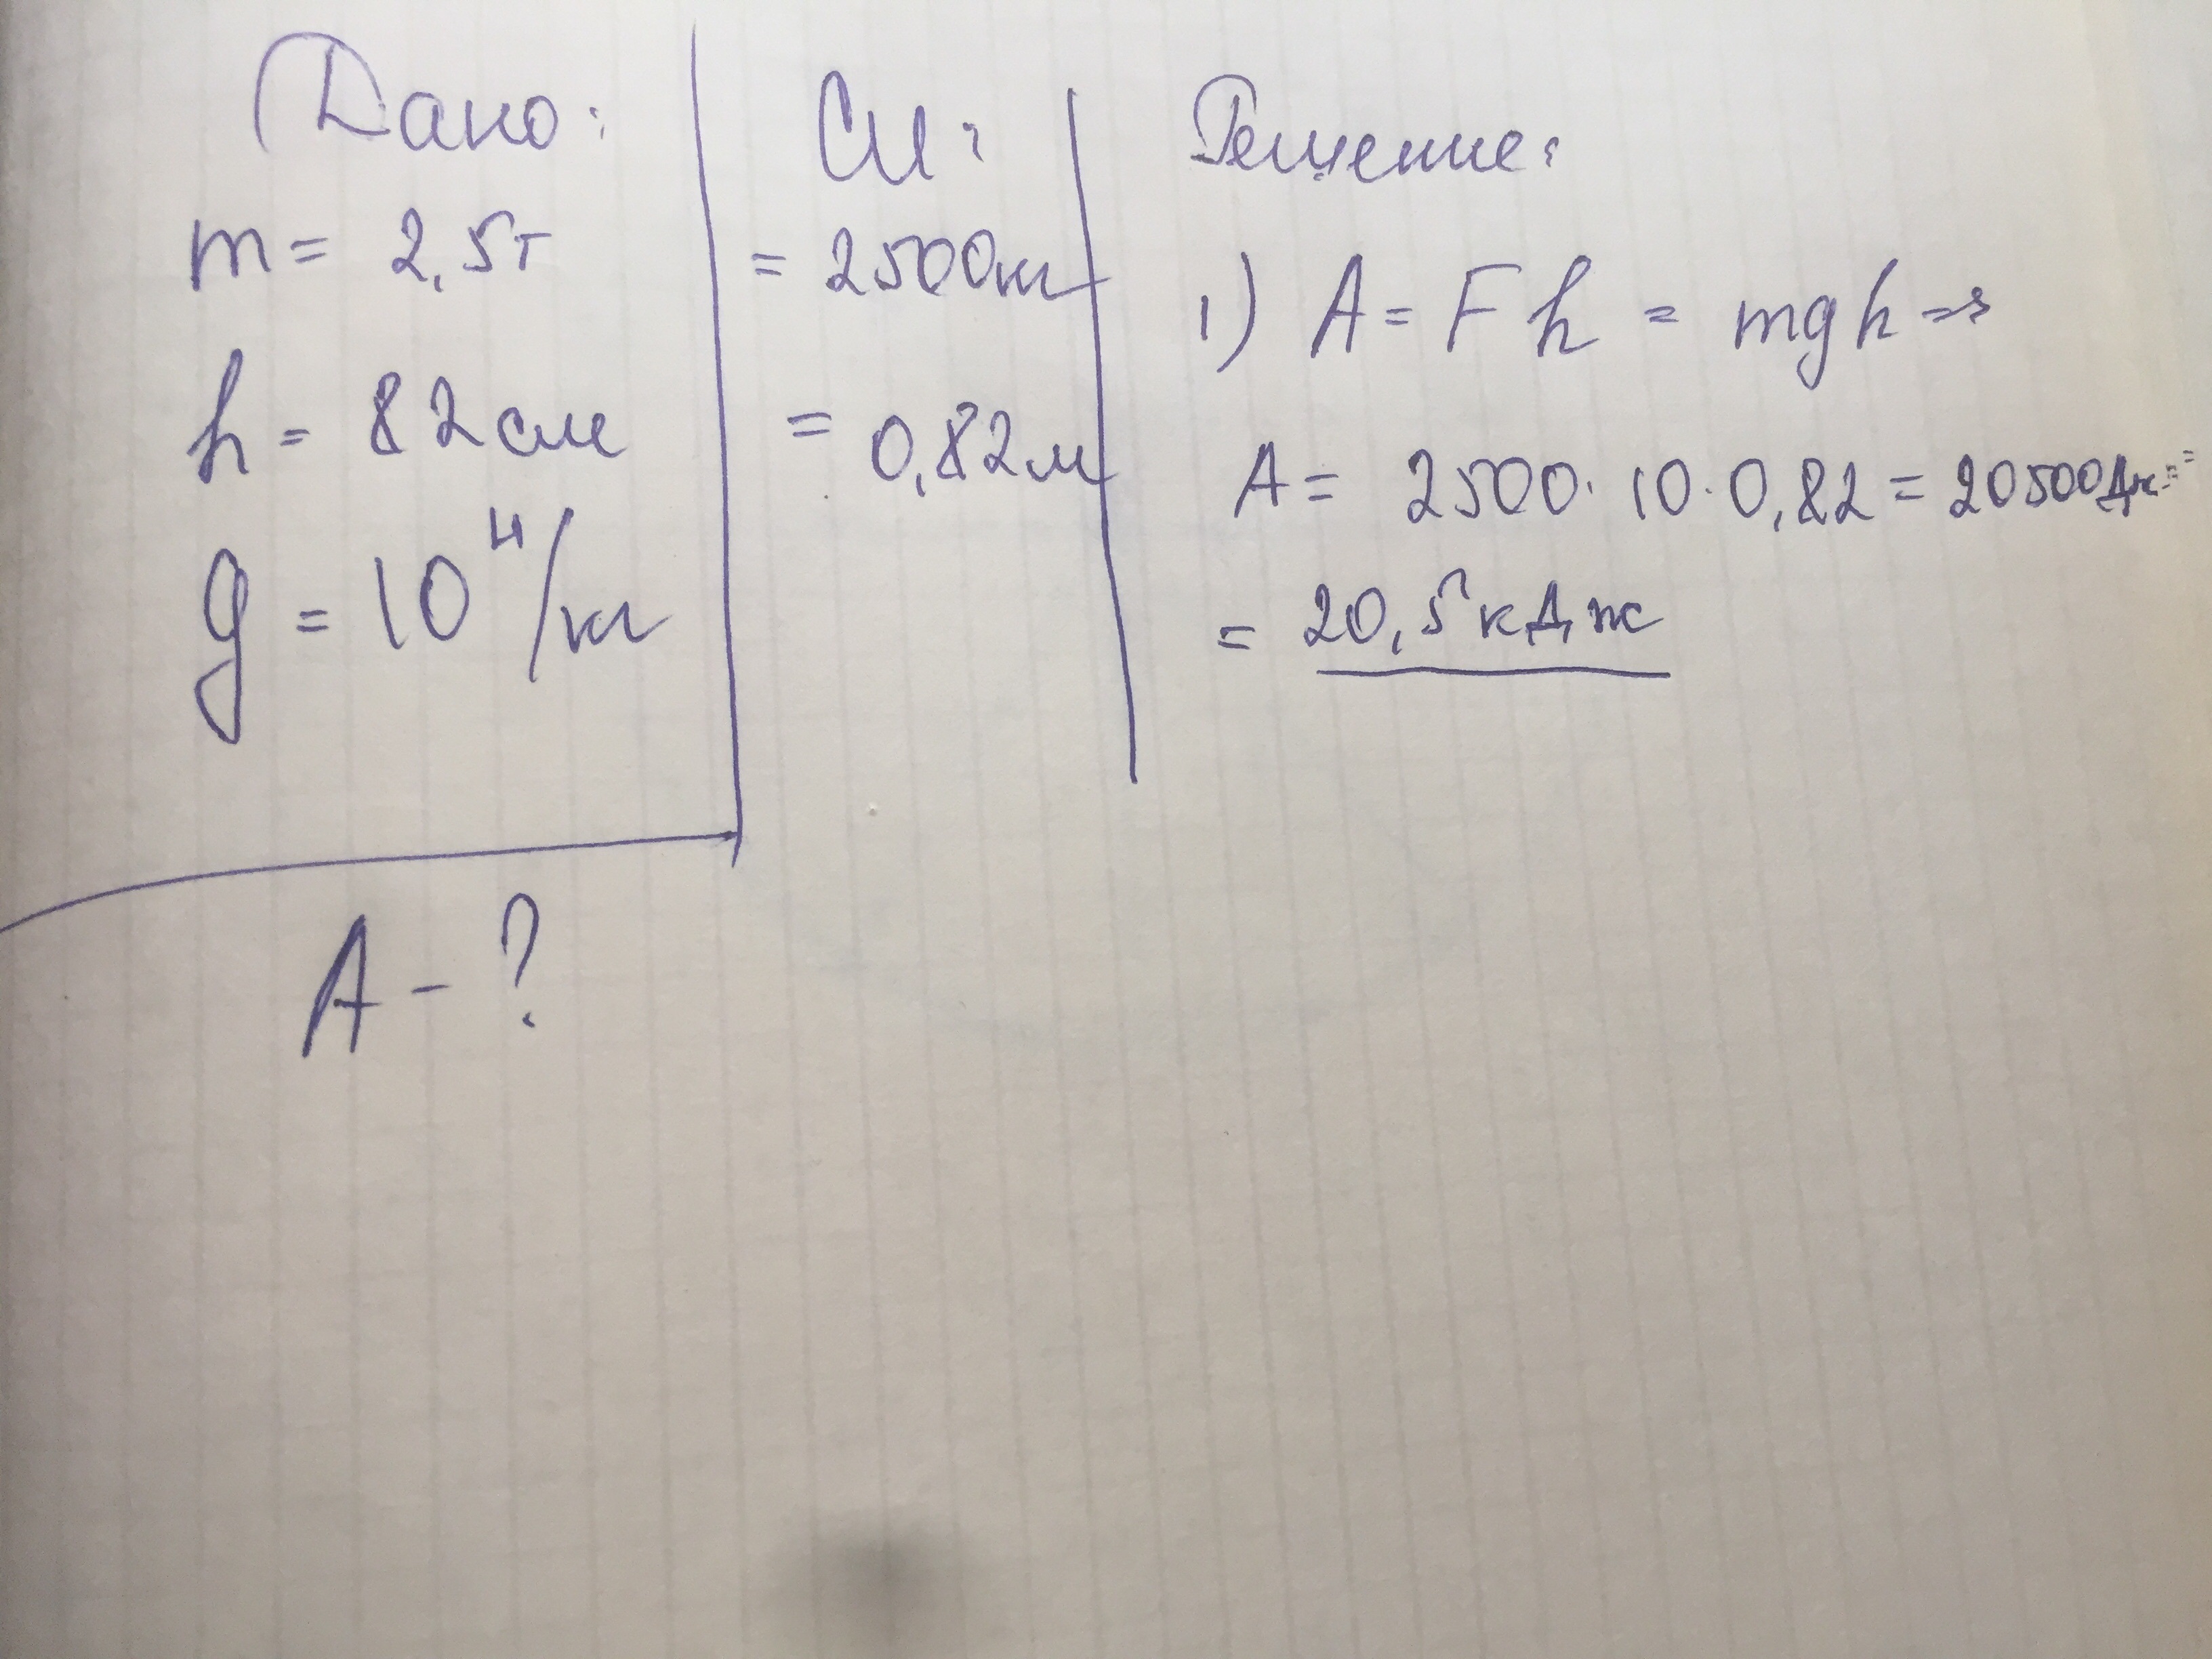 Дано:
m = 2,5т
h = 82см
g = 10 Н/кг
A - ?
СИ:
= 2500кг
= 0,82м
Решение:
1) A = F h = mgh =>
A = 2500 · 10 · 0,82 = 20500Дж =
= 20,5кДж